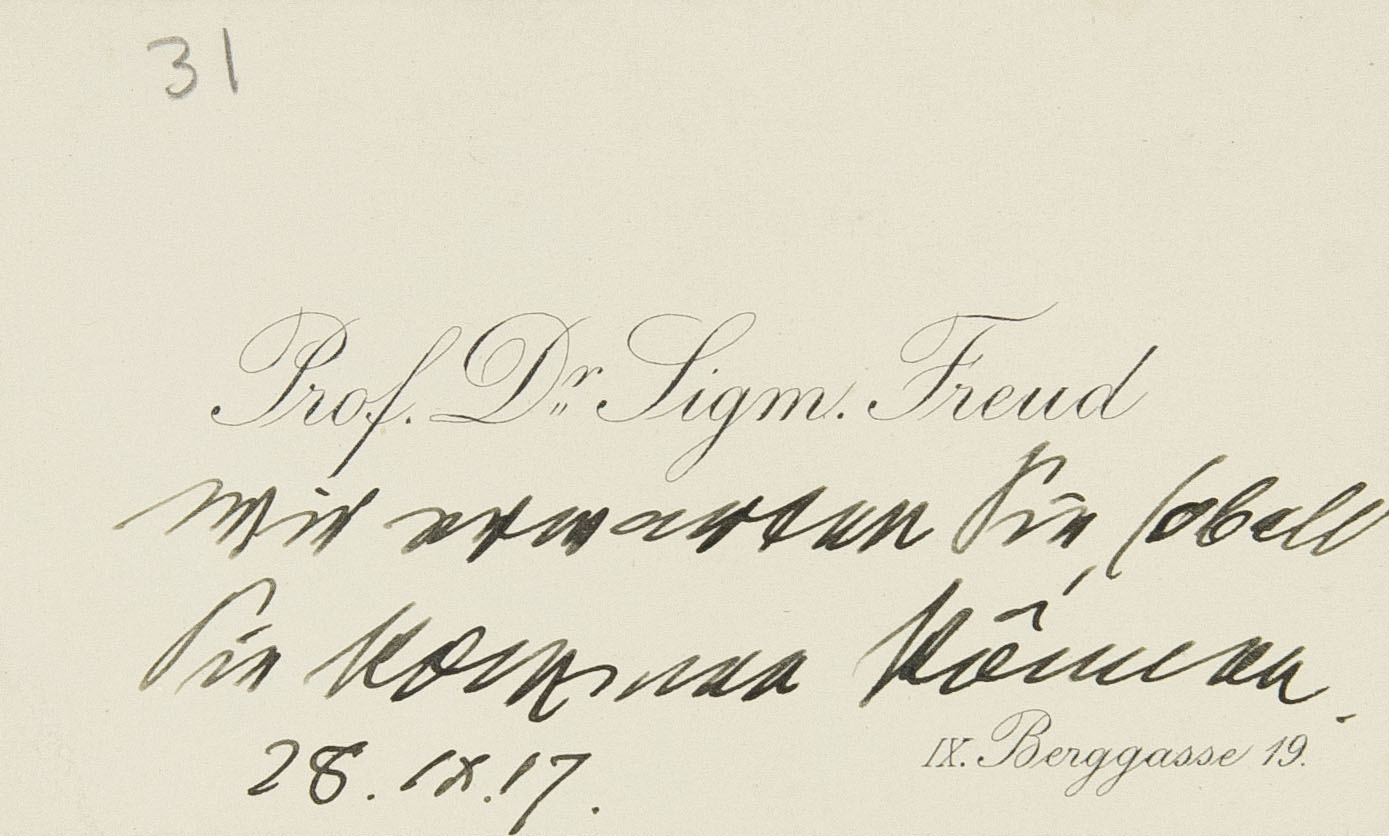 31
Prof. Dr. Sigm. Freud
wir erwarten Sie, sobald
Sie kommen können.
28. IX. 17.
IX. Berggasse 19.